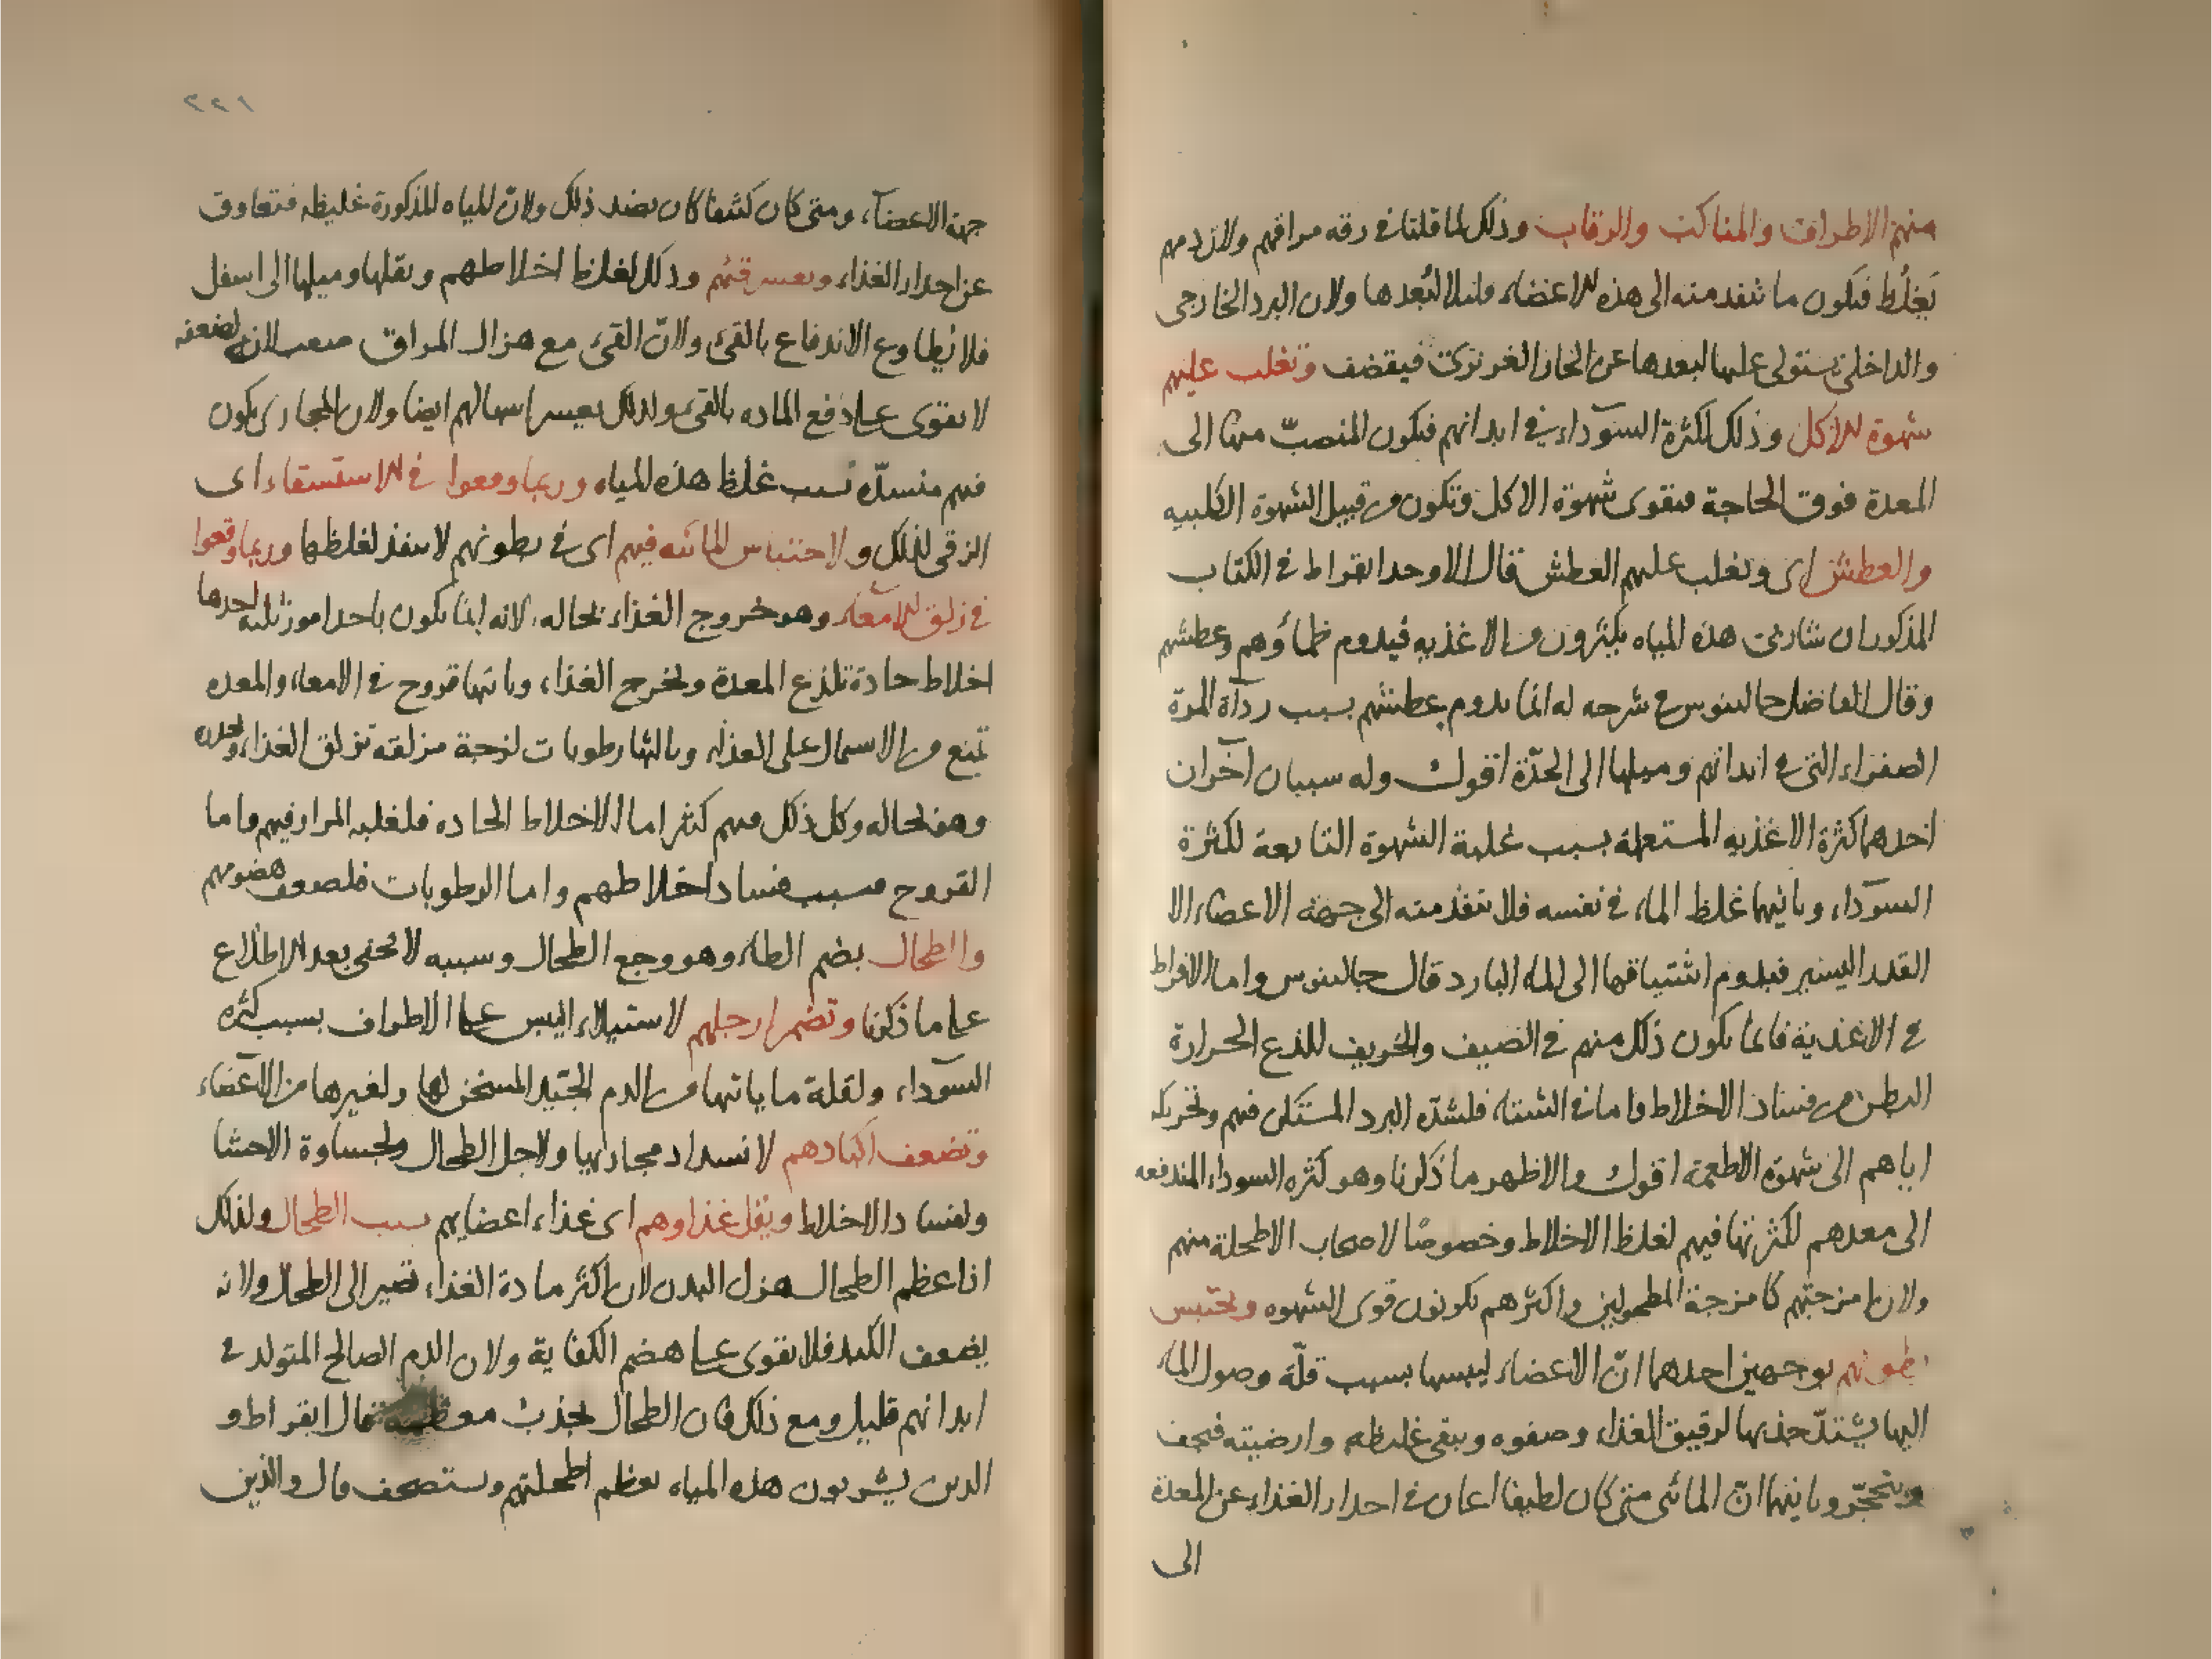 منهم الاطراف والمناكب والرقاب وذلك لما قلنا في رقة مراقهم ولان دمهم
يغلظ فيكون ما ينفد منه الى هذه الاعضاء قليلا لبعدها ولان البرد الخارجي
والداخلي يستولي عليها لبعدها عن الحار الغريزي فيقضف وتغلب عليهم
شهوة الاكل وذلك لكثرة السوداء في ابدانهم فيكون المنصب منها الى
المعدة فوق الحاجة فيقوى شهوة الاكل وتكون من قبيل الشهوة الكلبيه
والعطش اى وتغلب عليهم العطش قال الاوحد ابقراط في الكتاب
المذكور ان شاربى هذه المياه يكثرون من الاغذيه فيدوم ظمأوهم وعطشهم
وقال الفاضل جالينوس في شرحه له انما يدوم عطشهم بسبب رداة المرة
الصفراء التى في ابدانهم وميلها الى الحدة اقول وله سببان آخران
احدهما كثرة الاغذيه المستعملة بسبب غلبة الشهوة التابعة لكثرة
السوداء وثانيهما غلظ الماء في نفسه فلا ينفذ منه الى جهة الاعضاء الا
القدر اليسير فيدوم اشتياقها الى الماء البارد قال جالينوس واما الافراط
في الاغذية فانما يكون ذلك منهم في الصيف والخريف للذع الحرارة
البطن من فساد الاخلاط واما في الشتاء فلشدة البرد المستكن فيهم وتحريكه
اياهم الى شهوة الاطعمة اقول والاظهر ما ذكرنا وهو كثره السوداء المندفعه
الى معدهم لكثرتها فيهم لغلظ الاخلاط وخصوصًا لاصحاب الاطحلة منهم
ولان امزجتهم كامزجة المطحولين واكثرهم يكونون قوى الشهوه وتحتبس
بطونهم بوجهين احدهما ان الاعضاء ليبسها بسبب قلّة وصول الماء
اليها يشتد جذبها لرقيق الغذاء وصفوه ويبقى غليظه وارضيته فيجف
ويتحجر وثانيهما ان المائى متى كان لطيفا اعان في احدار الغذاء عن المعدة
الى
١٢٢
جهة الاعضاء، ومتى كان كثيفا كان بضد ذلك ولان المياه المذكورة غليظه فتعاوق
عن احدار الغذاء ويعسر قيئهم وذلك لغلظ اخلاطهم وثقلها وميلها الى اسفل
فلا يطاوع الاندفاع بالقئ ولان القئ مع هزال المراق صعب لانه لضعفه
لا يقوى على دفع الماده بالقئ ولذلك يعسر اسهالهم ايضا ولان المجارى يكون
فيهم منسدّه بسبب غلظ هذه المياه وربما وقعوا في الاستسقاء اى
الزقى لذلك ولاحتباس المائيه فيهم اى في بطونهم لا ينفذ لغلظها وربما وقعوا
في زلق الامعاء وهو خروج الغذاء بحاله، لانه انما يكون باحد امور ثلثه احدها
اخلاط حادة تلذع المعدة وتخرج الغذاء، وثانيها قروح في الامعاء والمعده
تمنع من الاشتمال على الغذاء وثالثها رطوبات لزجة مزلقه تزلق الغذاء
وهو بحاله وكل ذلك فيهم كثير اما الاخلاط الحاده فلغلبه المرار فيهم واما
القروح فبسبب فساد اخلاطهم واما الرطوبات فلضعف هضومهم
والطحال بضم الطاء وهو وجع الطحال وسببه لا يخفى بعد الاطلاع
على ما ذكرنا وتضمر ارجلهم لاستيلاء اليبس على الاطراف بسبب كثره
السوداء ولقلة ما ياتيها من الدم الجيّد المسخن لها ولغيرها من الاعضاء
وتضعف اكبادهم لانسداد مجاريها ولاجل الطحال ولجساوة الاحشا
ولفساد الاخلاط ويقل غذاوهم اى غذاء اعضايهم بسبب الطحال ولذلك
اذا عظم الطحال هزل البدن لان اكثر مادة الغذاء تصير الى الطحال ولانه
يضعف الكبد فلا يقوى على هضم الكفاية ولان الدم الصالح المتولد في
ابدانهم قليل ومع ذلك فان الطحال يجذب معظمه قال ابقراط و
الذين يشربون هذه المياه يعظم اطحلتهم وستصحف قال والذين